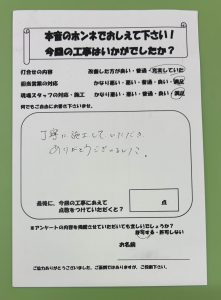 本音のホンネでおしえて下さい！
今回の工事はいかがでしたか？
打合せの内容 改善した方が良い・普通・充実していた
担当営業の対応 かなり悪い・悪い・普通・良い・満足
現場スタッフの対応・施工 かなり悪い・悪い・普通・良い・満足
何でもご自由にお書き下さいませ。
丁寧に施工していただき、
ありがとうございました。
最後に、今回の工事にあえて
点数をつけていただくと？ 点
※アンケートの内容を掲載させていただいても宜しいでしょうか？
許可する・許可しない
お名前
ご協力ありがとうございました。ご面倒ではありますが、ご投函下さい。